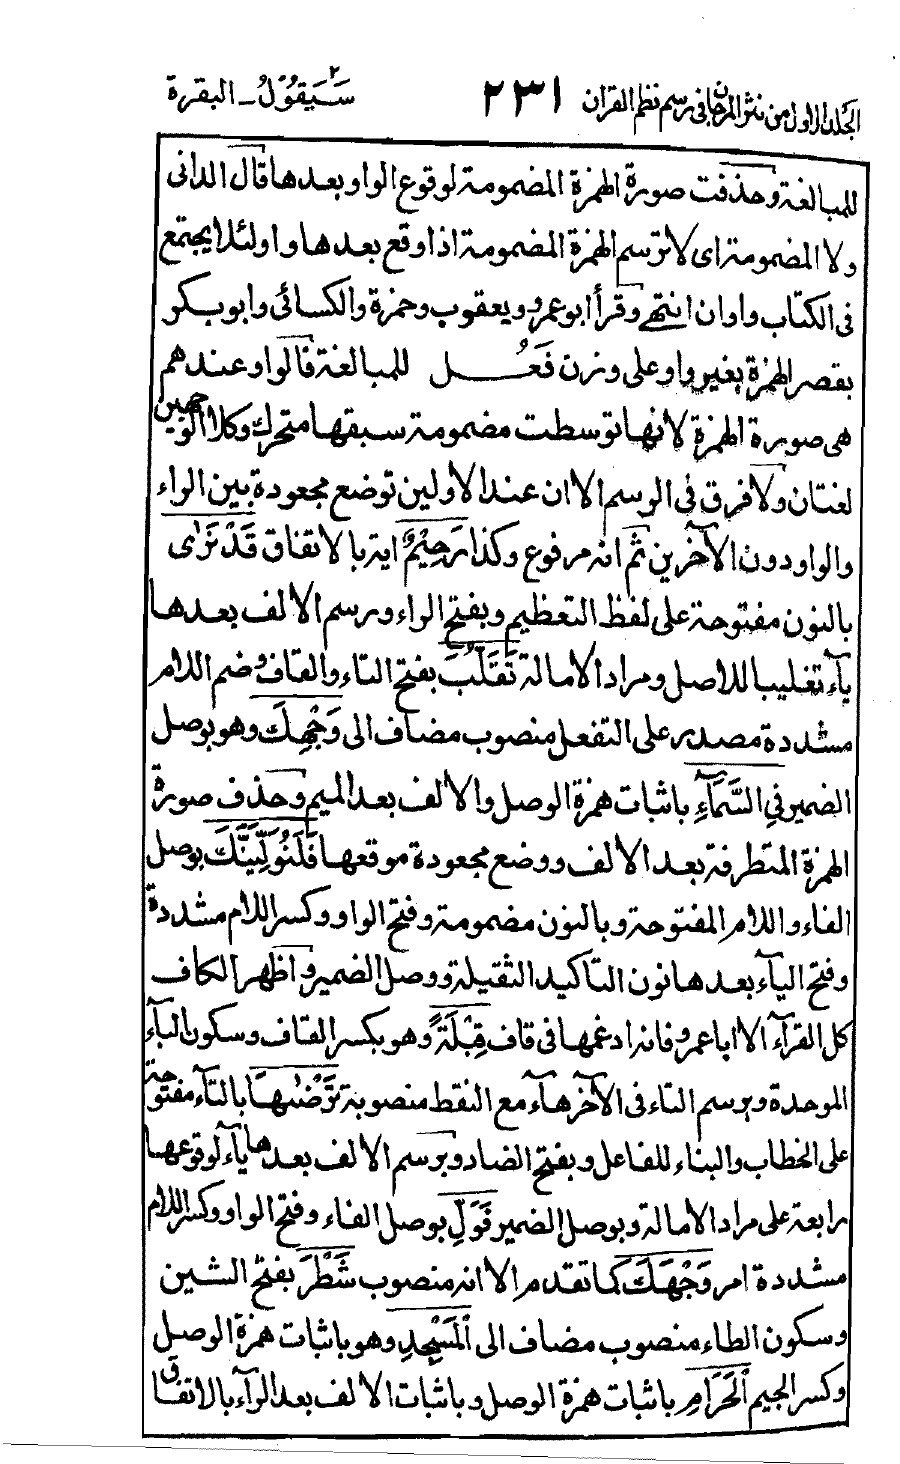 الجلد الاول من نثر المرجان في رسم نظم القران ٢٣١ سَيَقُوْلُ ٢ ـ البقرة
للمبالغة وحذفت صورة الهمزة المضمومة لوقوع الواو بعدها قال الدانى
ولا المضمومة اى لا ترسم الهمزة المضمومة اذا وقع بعدها واو لئلا يجتمع
فى الكتاب واوان انتهى وقرأ أبو عمرو ويعقوب وحمزة والكسائى وابوبكر
بقصر الهمزة بغير واو على وزن فَعُـــل للمبالغة فالواو عندهم
هى صورة الهمزة لانها توسطت مضمومة سبقها متحرك وكلا الوجهين
لغتان ولا فرق فى الرسم الا ان عند الاولين توضع مجعودة بين الراء
والواو دون الآخرين ثم انه مرفوع وكذا رَحِيْمٌ اية بالاتفاق قَدْ نَرٰى
بالنون مفتوحة على لفظ التعظيم وبفتح الراء ورسم الالف بعدها
يآء تغليبا للاصل ومراد الامالة تَقَلُّبَ بفتح التاء والقاف وضم اللام
مشددة مصدر على التفعل منصوب مضاف الى وَجْهِكَ وهو بوصل
الضمير فِي السَّمَآءِ باثبات همزة الوصل والالف بعد الميم وحذف صورة
الهمزة المتطرفة بعد الالف ووضع مجعودة موقعها فَلَنُوَلِّيَنَّكَ بوصل
الفاء واللام المفتوحة وبالنون مضمومة وفتح الواو وكسر اللام مشددة
وفتح اليآء بعدها نون التاكيد الثقيلة ووصل الضمير واظهر الكاف
كل القرآء الا ابا عمرو فانه ادغمها فى قاف قِبْلَةً وهو بكسر القاف وسكون البآء
الموحدة وبرسم التاء فى الآخر هآء مع النقط منصوبة تَرْضٰىهَا بالتآء مفتوحة
على الخطاب والبناء للفاعل وبفتح الضاد وبرسم الالف بعدها يآء لوقوعها
رابعة على مراد الامالة وبوصل الضمير فَوَلِّ بوصل الفاء وفتح الواو وكسر اللام
مشددة امر وَجْهَكَ كما تقدم الا انه منصوب شَطْرَ بفتح الشين
وسكون الطاء منصوب مضاف الى الْمَسْجِدِ وهو باثبات همزة الوصل
وكسر الجيم الْحَرَامِ باثبات همزة الوصل وباثبات الالف بعد الرآء بالاتفاق